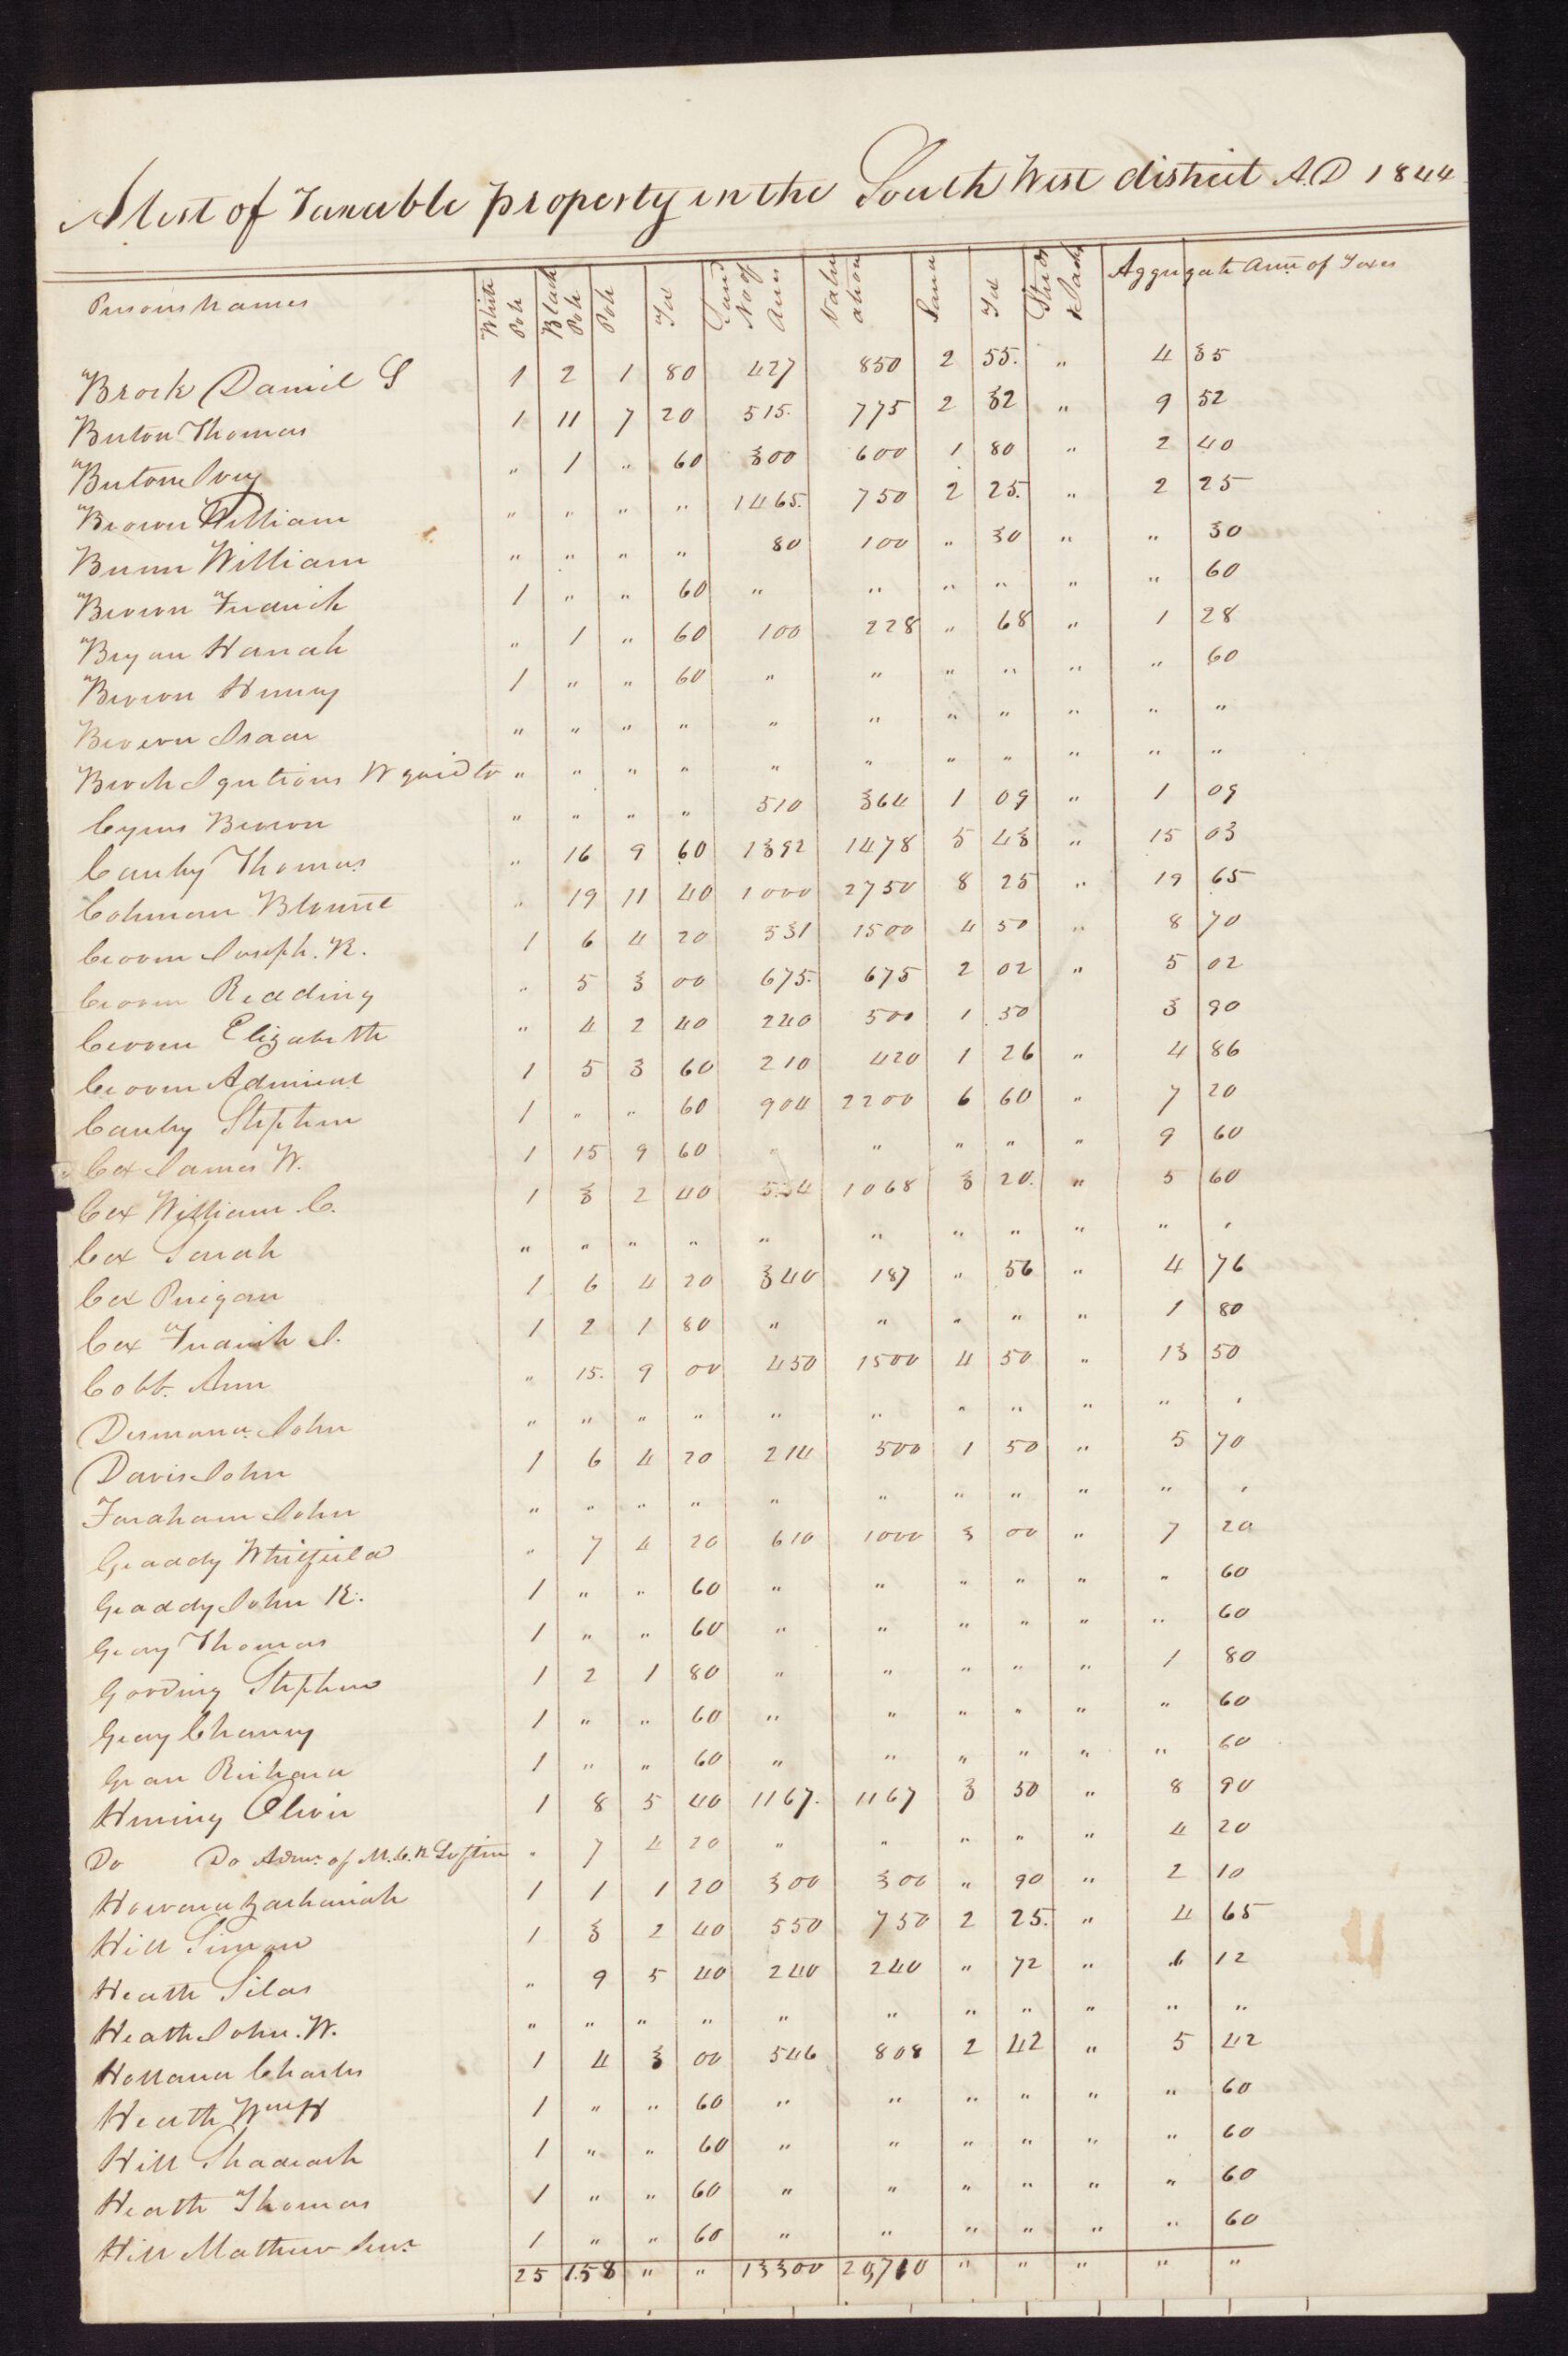 A list of Taxable property in the South West district A.D 1844
Persons names White Pole Black Pole Pole Tax Land No of Acres Valu ation Land Tax Stud & Jack Aggregate Amt of Taxes
Brock Daniel S 1 2 1 80 427 850 2 55. " 4 35
Burton Thomas 1 11 7 20 515. 775 2 32 " 9 52
Burton Ivey " 1 " 60 300 600 1 80 " 2 40
Brown William " " " " 1465. 750 2 25. " 2 25
Bunn William " " " " 80 100 " 30 " " 30
Brown Fredrick 1 " " 60 " " " " " " 60
Bryan Hanah " 1 " 60 100 228 " 68 " 1 28
Brown Henry 1 " " 60 " " " " " " 60
Brown Isaac " " " " " " " " " " "
Brock Igntious W " " " " " " " " " " "
Cyrus Brown " " " " 510 364 1 09 " 1 09
Cauley Thomas " 16 9 60 1392 1478 5 43 " 15 03
Colman Blount " 19 11 40 1000 2750 8 25 " 19 65
Croom Joseph. R. 1 6 4 20 531 1500 4 50 " 8 70
Croom Redding " 5 3 00 675. 675 2 02 " 5 02
Croom Elizabeth " 4 2 40 240 500 1 50 3 90
Croom Admiral 1 5 3 60 210 420 1 26 " 4 86
Cauley Stephen 1 " " 60 904 2200 6 60 " 7 20
Cox James W. 1 15 9 60 " " " " " 9 60
Cox William. C. 1 3 2 40 534 1068 3 20. " 5 60
Cox Sarah " " " " " " " " " " "
Cox Purigan 1 6 4 20 340 187 " 56 " 4 76
Cox Fredrick J. 1 2 1 80 " " " " " 1 80
Cobb. Ann " 15. 9 00 450 1500 4 50 " 13 50
Desmond. John " " " " " " " " " " "
Davis John 1 6 4 20 214 500 1 50 " 5 70
Faraham John " " " " " " " " " " "
Graddy Whitfield " 7 4 20 610 1000 3 00 " 7 20
Graddy John R. 1 " " 60 " " " " " " 60
Gray Thomas 1 " " 60 " " " " " " 60
Gooding Stephen 1 2 1 80 " " " " " 1 80
Gray Chancy 1 " " 60 " " " " " " 60
Gran Richard 1 " " 60 " " " " " " 60
Hering Oliver 1 8 5 40 1167. 1167 3 50 " 8 90
Do Do Admr. of M. C. R Loftin " 7 4 20 " " " " " 4 20
Howard Zachariah 1 1 1 20 300 300 " 90 " 2 10
Hill Simon 1 3 2 40 550 750 2 25. " 4 65
Heath Silas " 9 5 40 240 240 " 72 " 6 12
Heath John. W. " " " " " " " " " " "
Holland Charles 1 4 3 00 546 808 2 42 " 5 42
Heath Wm H 1 " " 60 " " " " " " 60
Hill Shadrach 1 " " 60 " " " " " " 60
Heath Thomas 1 " " 60 " " " " " " 60
Hill Mathew Senr. 1 " " 60 " " " " " " 60
25 158 " " 13300 20,710 " " " " "